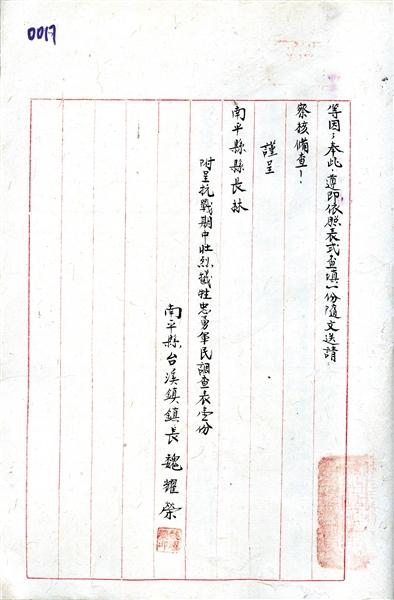 0017
等因；奉此，遵即依照表式查填一份隨文送請
察核備查！
謹呈
南平縣縣長林
附呈抗戰期中壯烈犧牲忠勇軍民調查表壹份
南平縣台溪鎮鎮長 魏耀榮